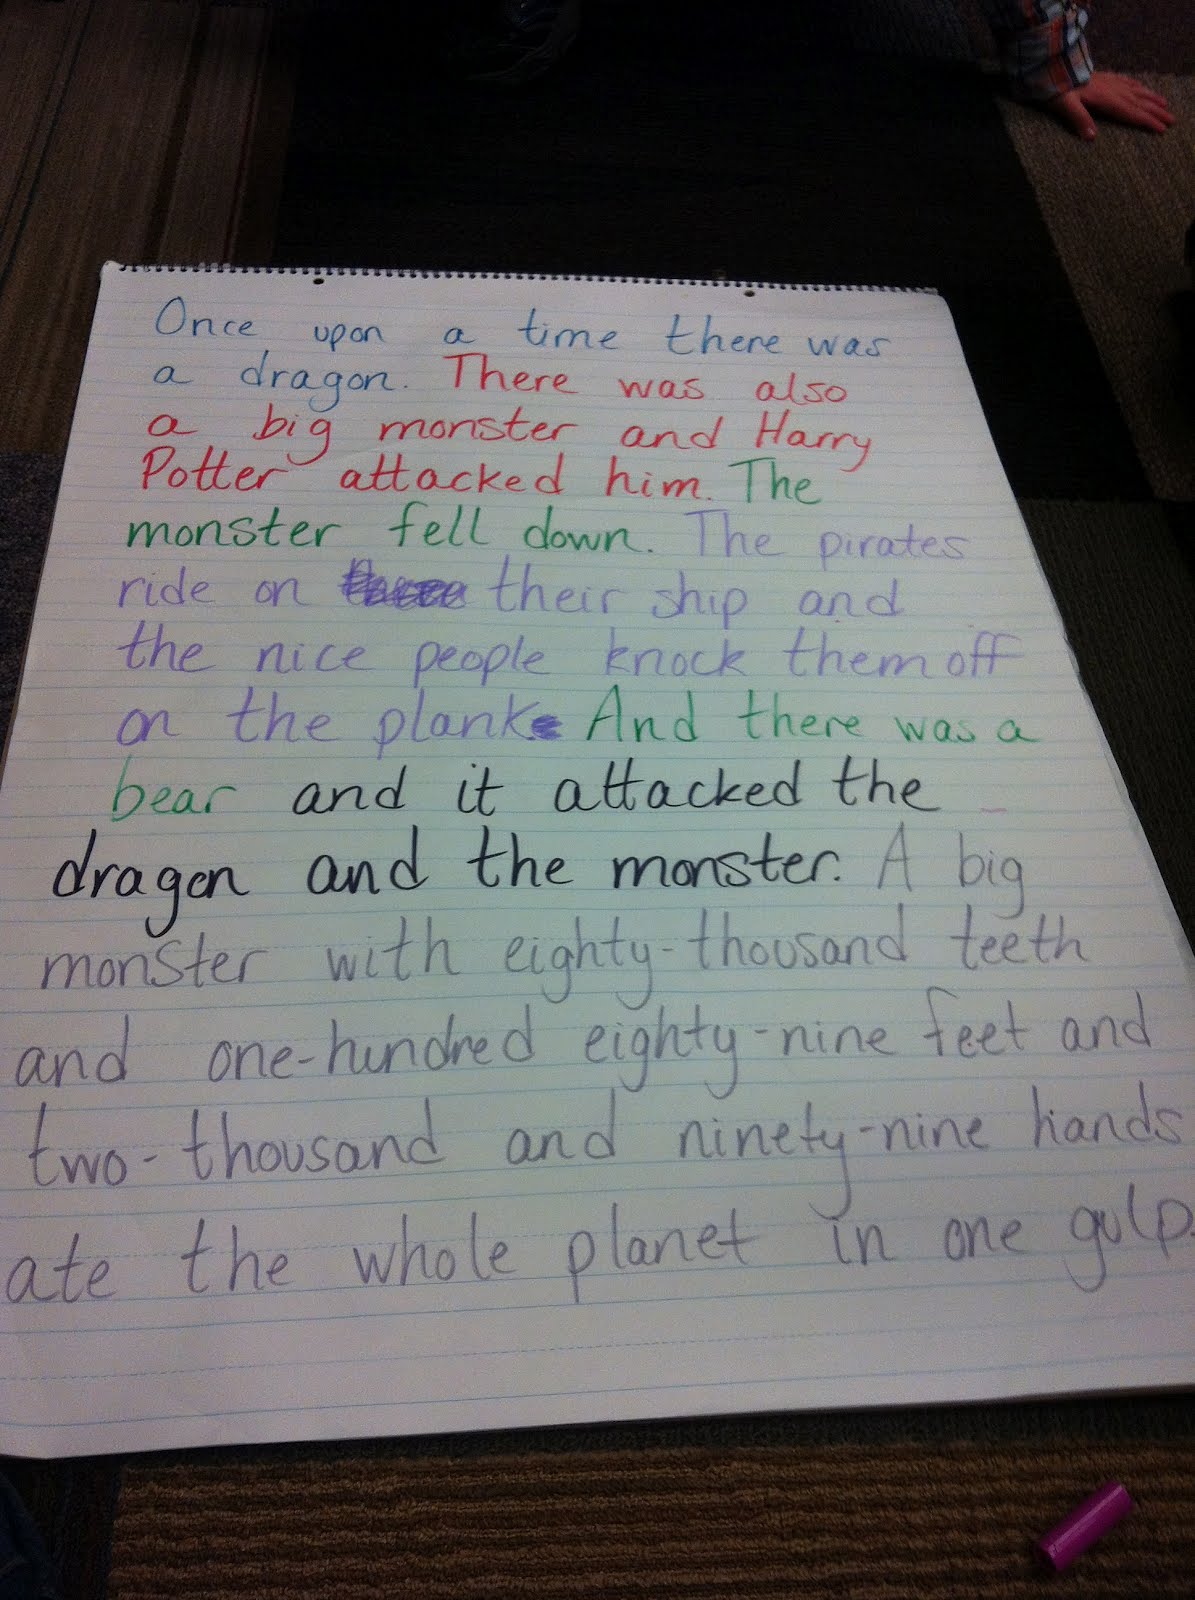 Once upon a time there was
a dragon. There was also
a big monster and Harry
Potter attacked him. The
monster fell down. The pirates
ride on their ship and
the nice people knock them off
on the plank And there was a
bear and it attacked the
dragon and the monster. A big
monster with eighty-thousand teeth
and one-hundred eighty-nine feet and
two-thousand and ninety-nine hands
ate the whole planet in one gulp.